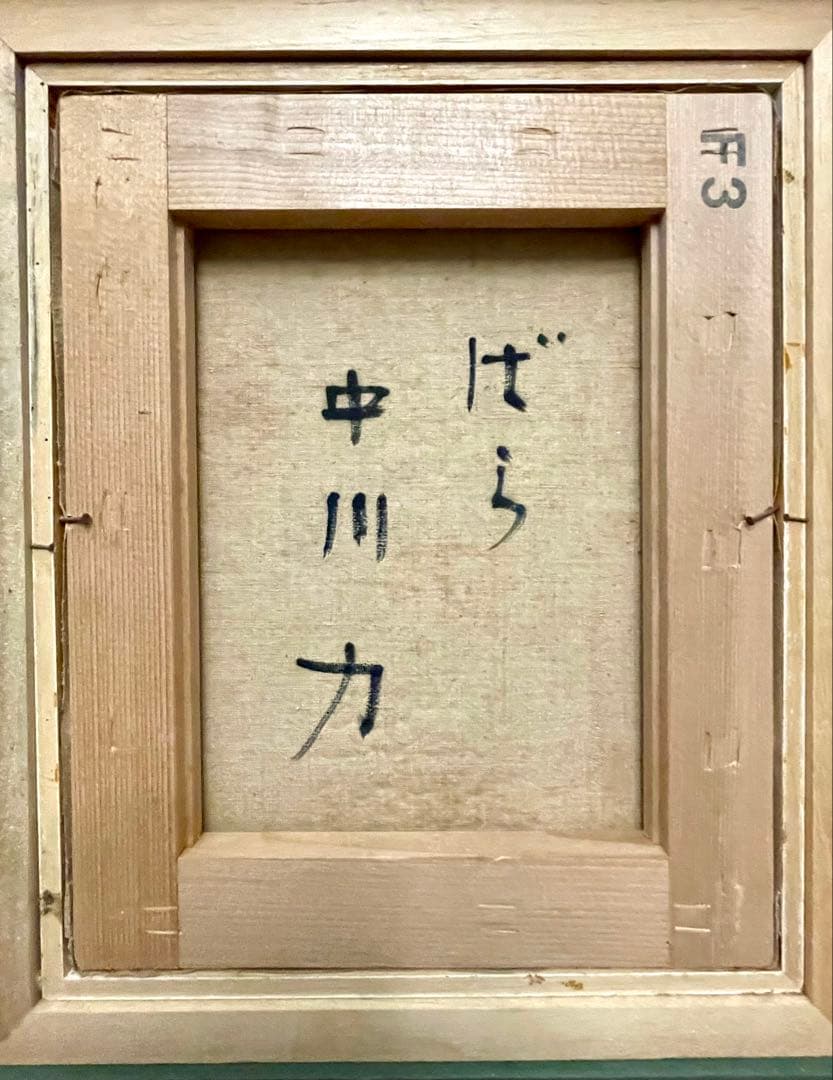 ばら
中川力
F3